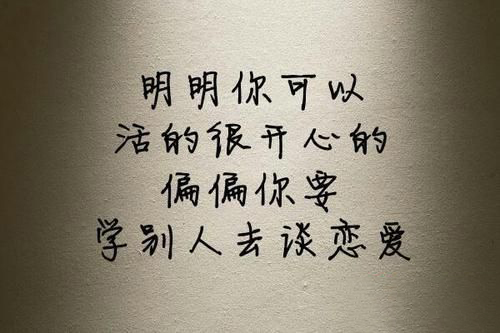 明明你可以
活的很开心的
偏偏你要
学别人去谈恋爱